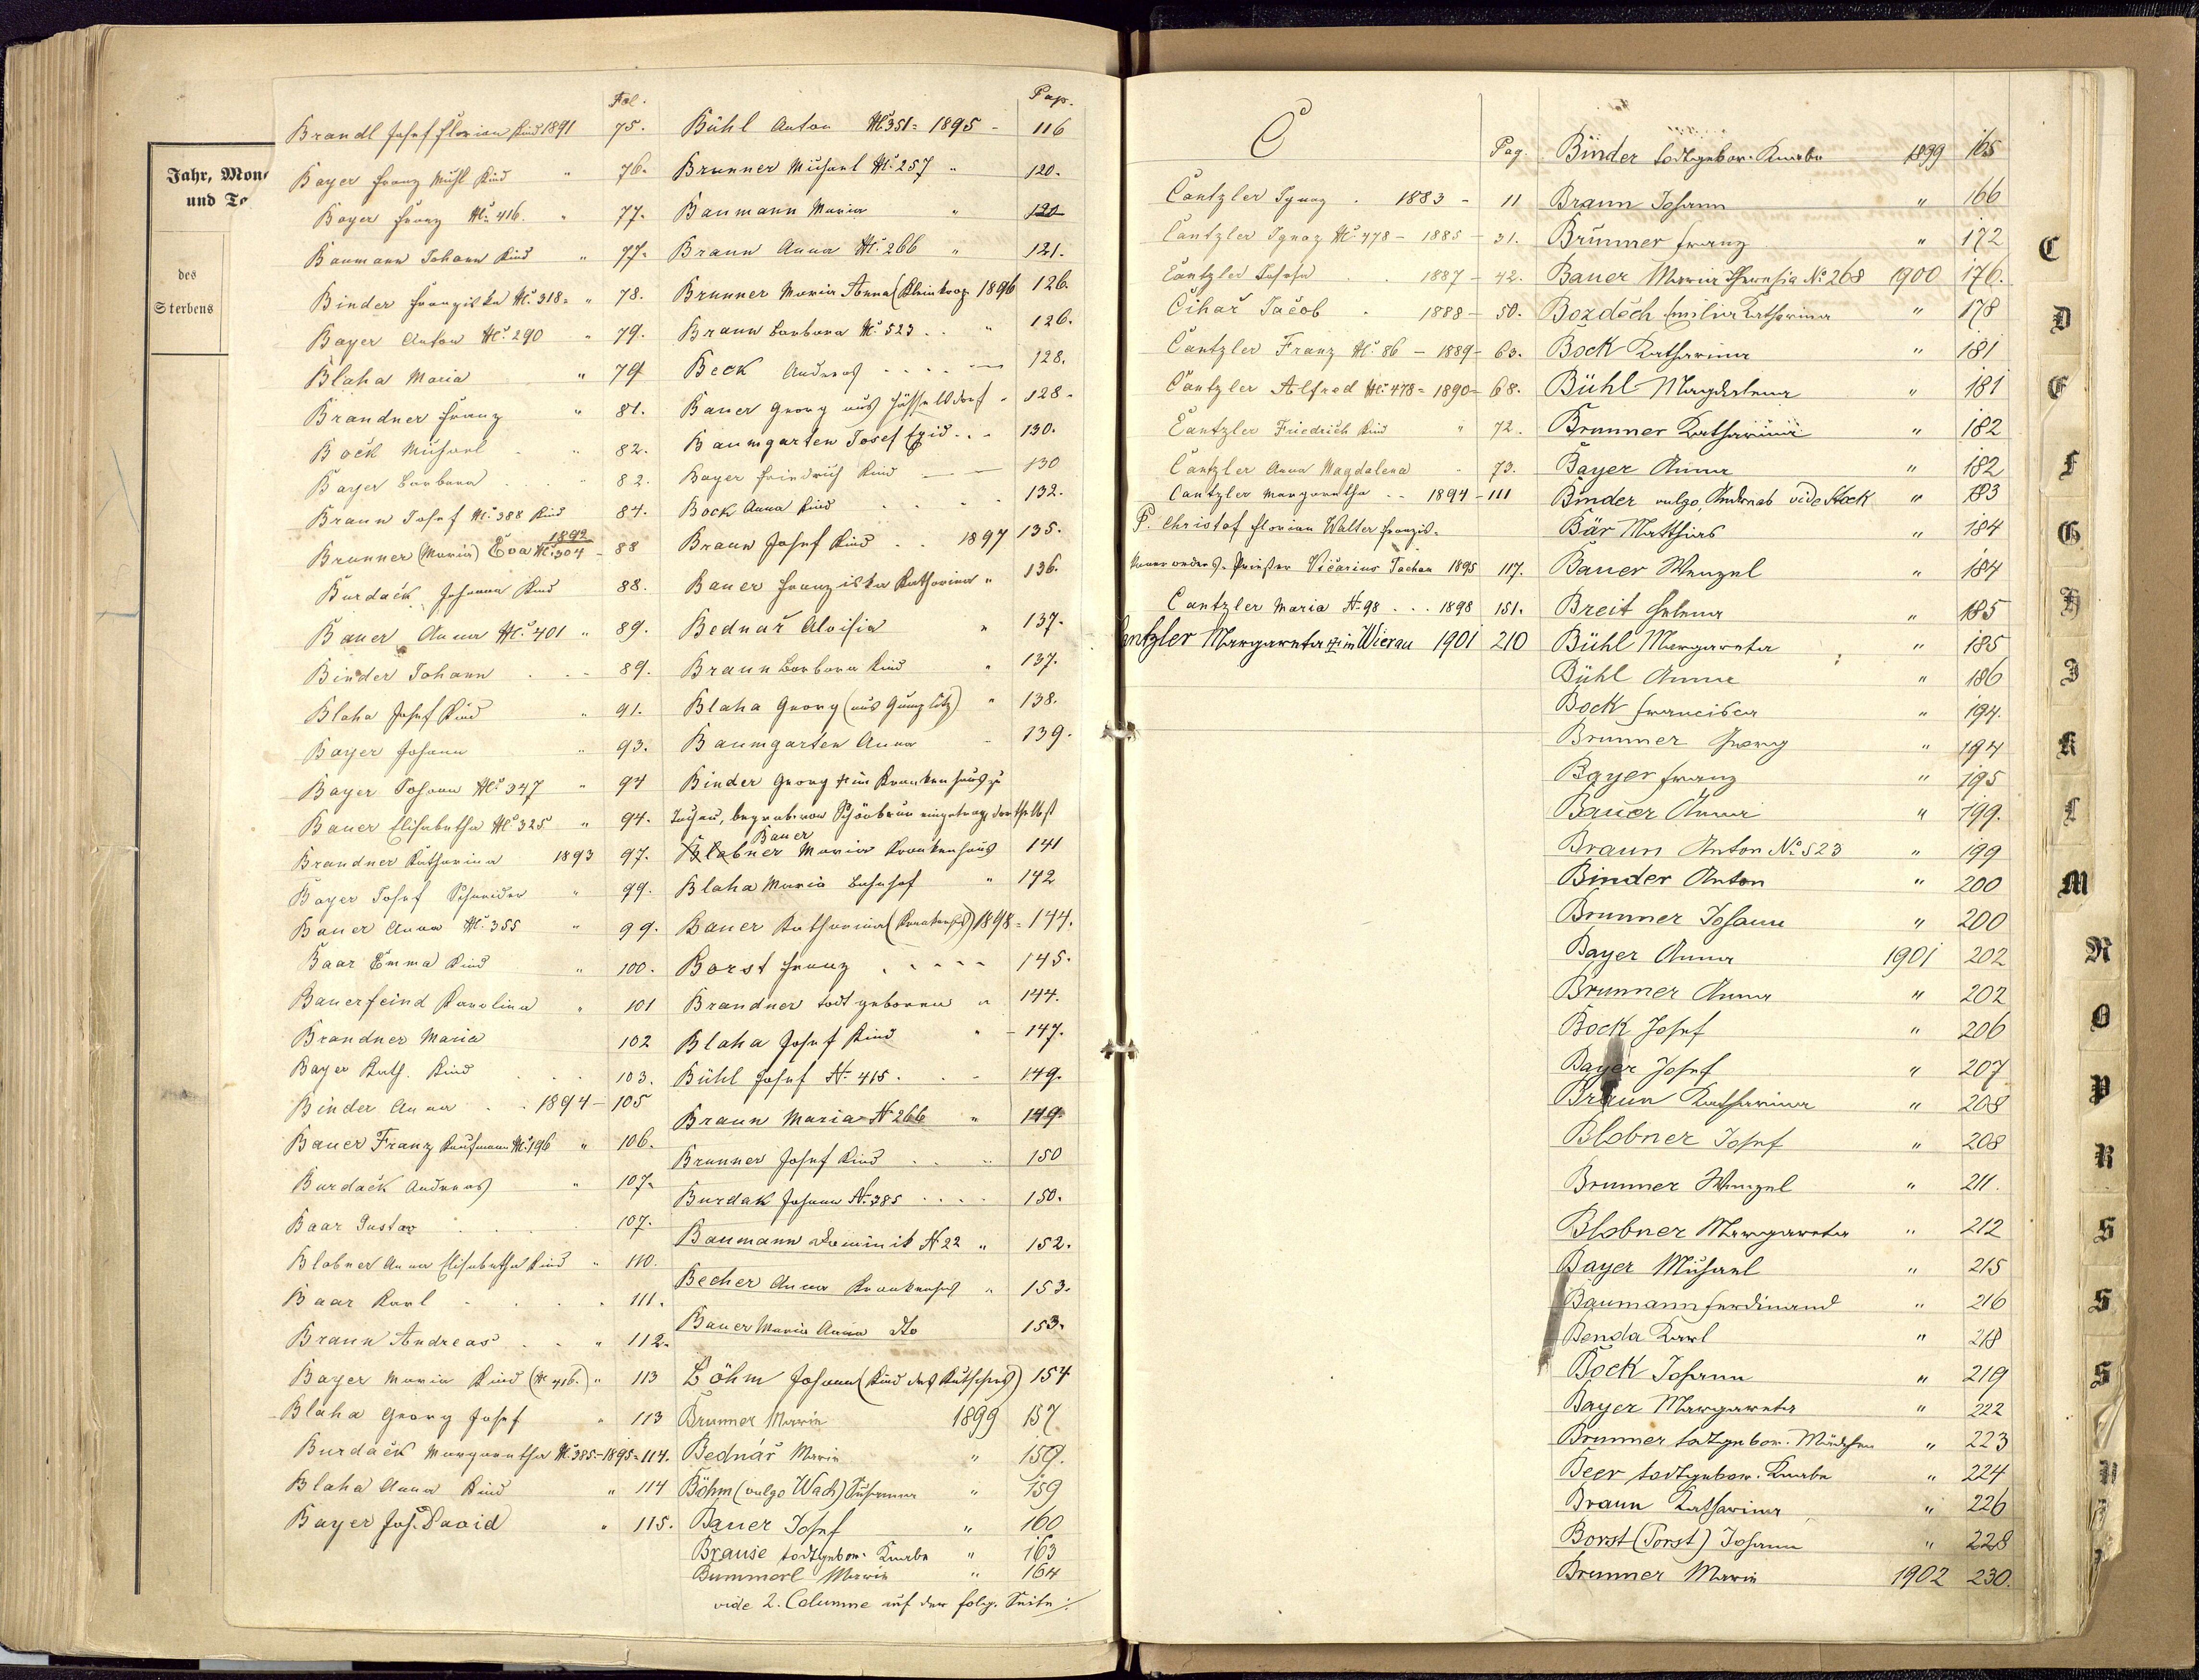 Jahr, Mon
und Ta
des
Sterbens
Fol.
Brandl Josef Florian Kind 1891 75.
Bayer Franz Kind " 76.
Bayer Franz No. 416. " 77.
Baumann Johann Kind " 77.
Binder Franziska No. 318 " 78.
Bayer Anton No. 290 " 79.
Blaha Maria " 79
Brandner Franz " 81.
Bock Michael " 82.
Bayer Barbara " 82.
Braun Josef No. 388 Kind 84.
1892
Brunner (Maria) Eva No. 304 - 88
Burdack Johanna Kind 88.
Bauer Anna No. 401 " 89.
Binder Johann - 89.
Blaha Josef Kind " 91.
Bayer Johann " 93.
Bayer Johann No. 347 " 94
Bauer Elisabetha No. 325 " 94.
Brandner Katharina 1893 97.
Bayer Josef Schneider " 99.
Bauer Anna No. 355 " 99.
Baar Emma Kind " 100.
Bauerfeind Karolina " 101
Brandner Maria 102
Bayer Kath. Kind 103.
Binder Anna 1894 - 105
Bauer Franz Kaufmann No. 196 " 106.
Burdack Andreas " 107.
Baar Gustav 107.
Blobner Anna Elisabetha Kind " 110.
Baar Karl 111.
Braun Andreas " 112.
Bayer Maria Kind (No 416.) " 113
Blaha Georg Josef " 113
Burdack Margaretha No. 385 - 1895 - 114.
Blaha Anna Kind " 114
Bayer Jos. David " 115.
Pag.
Bühl Anton No. 351 - 1895 - 116
Brunner Michael No. 257 " 120.
Baumann Maria " 120
Braun Anna No. 266 " 121.
Brunner Maria Anna 1896 126.
Braun Barbara No. 523 " 126.
Beck Andreas 128.
Bauer Georg aus 128.
Baumgarten Josef Egid 130.
Bayer Friedrich Kind 130
Bock Anna Kind 132.
Braun Josef Kind 1897 135.
Bauer Franziska Katharina " 136.
Bednař Aloisia " 137.
Braun Barbara Kind " 137.
Blaha Georg (aus ) " 138.
Baumgarten Anna 139.
Binder Georg † im Krankenhaus zu
Tachau, begraben von Schönbrunn eingetragen dortselbst
Bauer
Blobner Maria Krankenhaus 141
Blaha Maria Bahnhof " 142
Bauer Katharina (Krankenhs) 1898 - 144.
Borst Franz 145.
Brandner todt geboren " 144.
Blaha Josef Kind " - 147.
Bühl Josef N. 415. 149.
Braun Maria N 266 " 149.
Brunner Josef Kind 150
Burdak Johann N. 385 150.
Baumann Dominik N 22 " 152.
Becher Anna Krankenhs " 153.
Bauer Maria Anna dto 153.
Böhm Johann (Kind des Kutschers) 154
Brunner Maria 1899 157
Bednář Maria " 159.
Böhm (vulgo Wach) Susanna " 159
Bauer Josef " 160
Brause todtgebor. Knabe " 163
Bummerl Maria " 164
vide 2. Columne auf der folg. Seite ./.
C
Pag.
Cantzler Ignaz . 1883 - 11
Cantzler Ignaz No. 478 - 1885 - 31.
Cantzler Josefa 1887 - 42.
Cihař Jacob . 1888 - 50.
Cantzler Franz No. 86 - 1889 - 63.
Cantzler Alfred No. 478 - 1890 - 68.
Cantzler Friedrich Kind " 72.
Cantzler Anna Magdalena 73.
Cantzler Margaretha 1894 - 111
P. Christof Florian Walter Franzis-
kanerordens-Priester Vicarius Tachau 1895 117.
Cantzler Maria N. 98 . . . 1898 151.
Cantzler Margareta † in Wierau 1901 210
Binder todtgebor. Knabe 1899 165
Braun Johann " 166
Brunner Franz " 172
Bauer Maria Theresia No 268 1900 176.
Bozděch Emilia Katharina " 178
Bock Katharina " 181
Bühl Magdalena " 181
Brunner Katharina " 182
Bayer Anna " 182
Binder vulgo vide Stock " 183
Bär Mathias " 184
Bauer Wenzel " 184
Breit Helena " 185
Bühl Margareta " 185
Bühl Anna " 186
Bock Francisca " 194.
Brunner Georg " 194
Bayer Franz " 195
Bauer Anna " 199.
Braun Anton No 523 " 199
Binder Anton " 200
Brunner Johann " 200
Bayer Anna 1901 202
Brunner Anna " 202
Bock Josef " 206
Bayer Josef " 207
Braun Katharina " 208
Blobner Josef " 208
Brunner Wenzel " 211.
Blobner Margareta " 212
Bayer Michael " 215
Baumann Ferdinand " 216
Benda Karl " 218
Bock Johann " 219
Bayer Margareta " 222
Brunner todtgebor. Mädchen " 223
Beer todtgebor. Knabe " 224
Braun Katharina " 226
Borst (Porst) Johann " 228
Brunner Maria 1902 230.
C
D
E
F
G
H
I
K
L
M
N
O
P
R
S
S
S